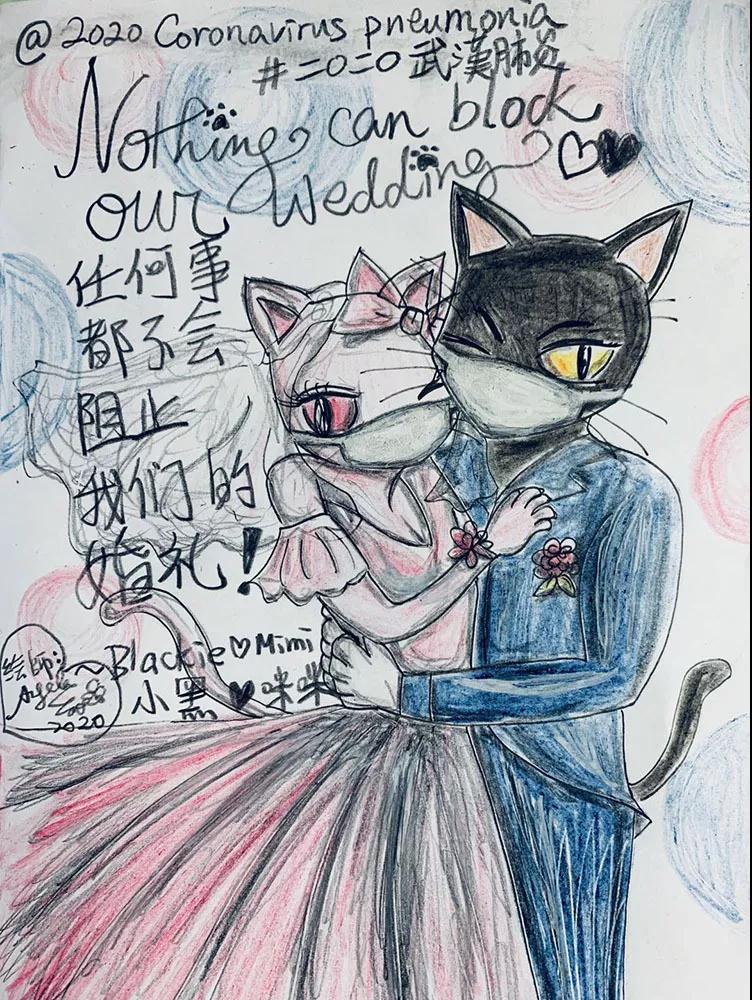 @ 2020 Coronavirus pneumonia
#二〇二〇武漢肺炎
Nothing can block
our wedding
任何事
都不会
阻止
我们的
婚礼!
~Blackie♡Mimi
小黑♥咪咪
绘师:
Angela
2020